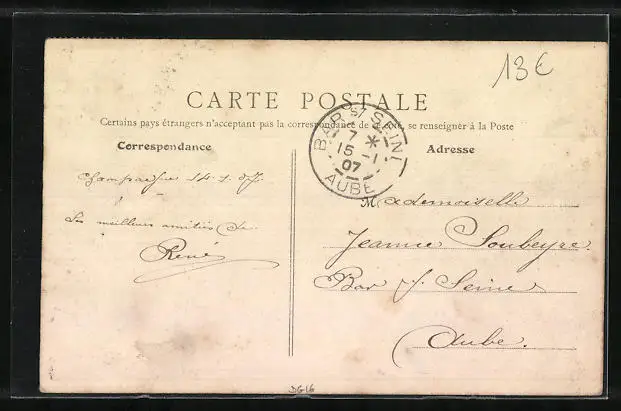 13€
CARTE POSTALE
Certains pays étrangers n'acceptant pas la correspondance de ce côté, se renseigner à la Poste
Correspondance
Adresse
BAR S/ SEINE
7 *
15 -1
07
AUBE
14-1-07
Les meilleurs amitiés de
René
Mademoiselle
Jeanne Soubeyre
Bar s/ Seine
Aube.
DG16